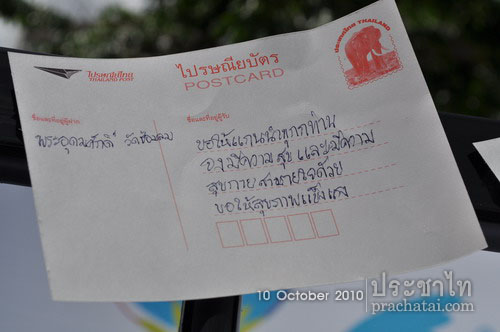 ไปรษณีย์ไทย
THAILAND POST
ไปรษณียบัตร
POSTCARD
ประเทศไทย THAILAND
ชื่อและที่อยู่ผู้ฝาก
ชื่อและที่อยู่ผู้รับ
พระอุดมศักดิ์ วัดช้อนลม
ขอให้แกนนำทุกท่าน
จงมีความสุข และมีความ
สุขกายสบายใจด้วย
ขอให้สุขภาพแข็งแรง
10 October 2010
ประชาไท
prachatai.com